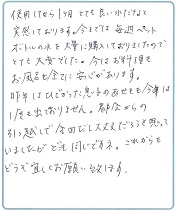 使用して1ヶ月とても良い水だなと
実感しております。今までは毎週ペット
ボトルの水を大量に購入しておりましたので
とても大変でした。今はお料理も
お風呂も全てに安心があります。
昨年はひどかった息子のあせもも今年は
1度も出ておりません。都会からの
引っ越しで全回だし大丈夫だろうと思って
いましたがどこも同じですネ。これからも
どうぞ宜しくお願い致します。